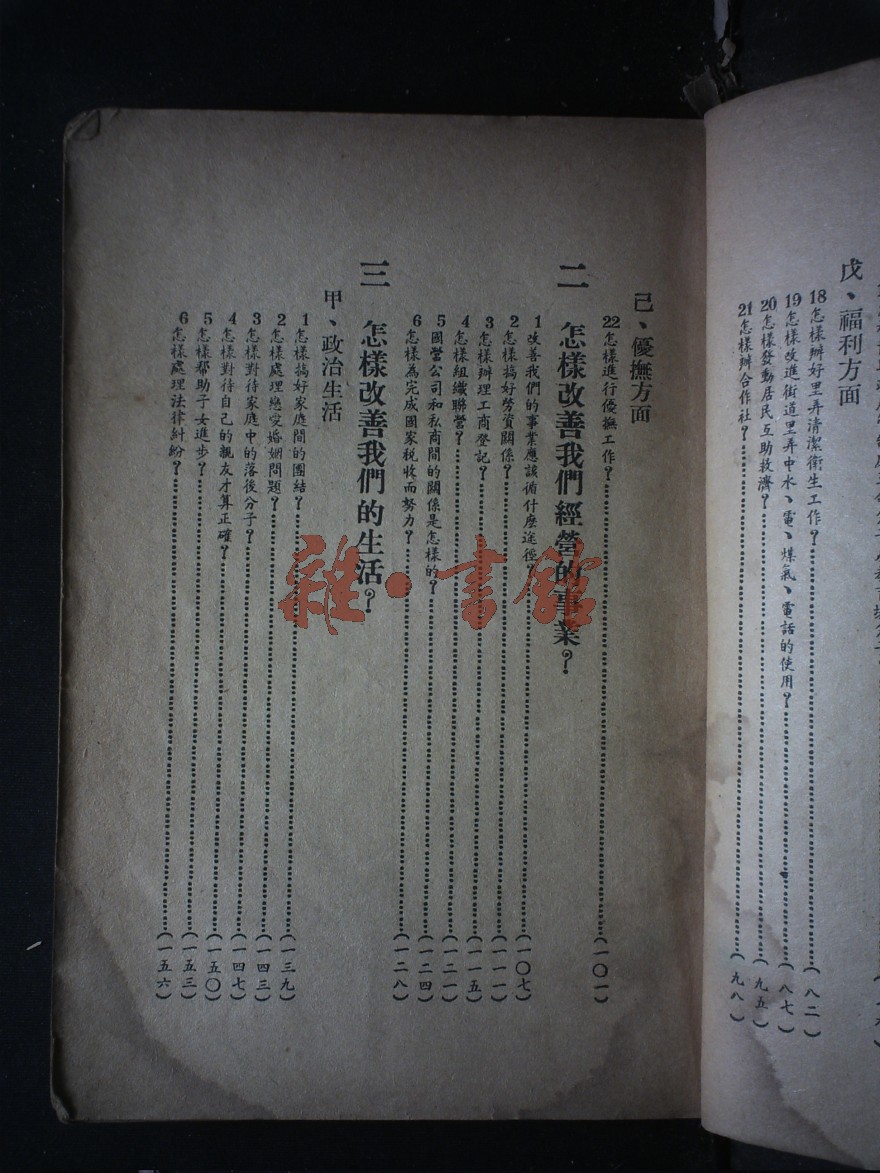 戊、福利方面
18怎樣辦好里弄清潔衛生工作？……(八二)
19怎樣改進街道里弄中水、電、煤氣、電話的使用？……(八七)
20怎樣發動居民互助救濟？……(九五)
21怎樣辦合作社？……(九八)
己、優撫方面
22怎樣進行優撫工作？……(一〇一)
二 怎樣改善我們經營的事業？
1改善我們的事業應該循什麼途徑？……(一〇七)
2怎樣搞好勞資關係？……(一一一)
3怎樣辦理工商登記？……(一一五)
4怎樣組織聯營？……(一二一)
5國營公司和私商間的關係是怎樣的？……(一二四)
6怎樣為完成國家稅收而努力？……(一二八)
三 怎樣改善我們的生活？
甲、政治生活
1怎樣搞好家庭間的團結？……(一三九)
2怎樣處理戀愛婚姻問題？……(一四三)
3怎樣對待家庭中的落後分子？……(一四七)
4怎樣對待自己的親友才算正確？……(一五〇)
5怎樣幫助子女進步？……(一五三)
6怎樣處理法律糾紛？……(一五六)
雜·書館